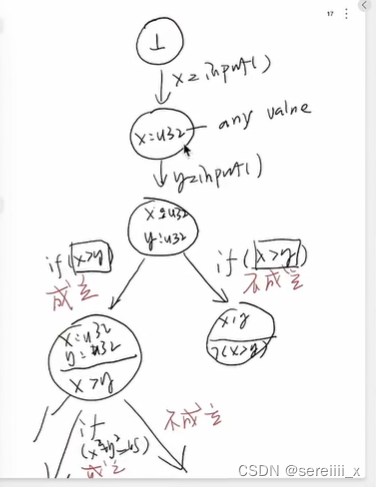 17
1
x=input()
x:u32
any value
y=input()
x:u32
y:u32
if(x>y)
成立
if(x>y)
不成立
x:u32
y:u32
x>y
x,y
¬(x>y)
if
成立
不成立
CSDN @sereiiii_x